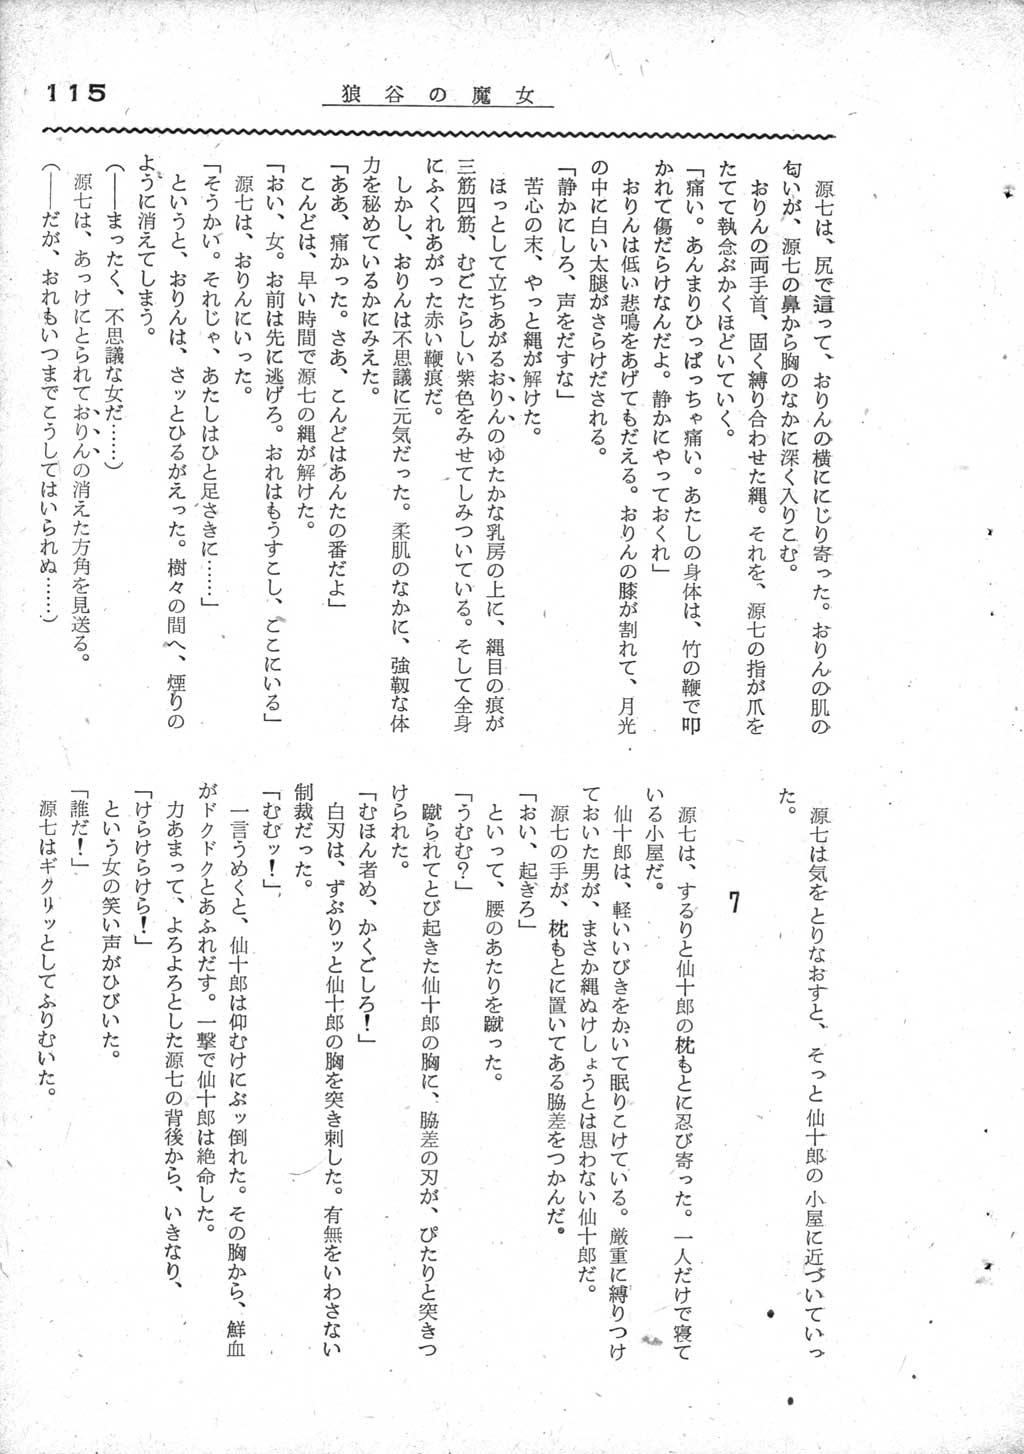 115
狼谷の魔女
源七は、尻で這って、おりんの横ににじり寄った。おりんの肌の
匂いが、源七の鼻から胸のなかに深く入りこむ。
おりんの両手首、固く縛り合わせた縄。それを、源七の指が爪を
たてて執念ぶかくほどいていく。
「痛い。あんまりひっぱっちゃ痛い。あたしの身体は、竹の鞭で叩
かれて傷だらけなんだよ。静かにやっておくれ」
おりんは低い悲鳴をあげてもだえる。おりんの膝が割れて、月光
の中に白い太腿がさらけだされる。
「静かにしろ、声をだすな」
苦心の末、やっと縄が解けた。
ほっとして立ちあがるおりんのゆたかな乳房の上に、縄目の痕が
三筋四筋、むごたらしい紫色をみせてしみついている。そして全身
にふくれあがった赤い鞭痕だ。
しかし、おりんは不思議に元気だった。柔肌のなかに、強靱な体
力を秘めているかにみえた。
「ああ、痛かった。さあ、こんどはあんたの番だよ」
こんどは、早い時間で源七の縄が解けた。
「おい、女。お前は先に逃げろ。おれはもうすこし、ここにいる」
源七は、おりんにいった。
「そうかい。それじゃ、あたしはひと足さきに……」
というと、おりんは、さッとひるがえった。樹々の間へ、煙りの
ように消えてしまう。
(――まったく、不思議な女だ……)
源七は、あっけにとられておりんの消えた方角を見送る。
(――だが、おれもいつまでこうしてはいられぬ……)
源七は気をとりなおすと、そっと仙十郎の小屋に近づいていっ
た。
7
源七は、するりと仙十郎の枕もとに忍び寄った。一人だけで寝て
いる小屋だ。
仙十郎は、軽いいびきをかいて眠りこけている。厳重に縛りつけ
ておいた男が、まさか縄ぬけしょうとは思わない仙十郎だ。
源七の手が、枕もとに置いてある脇差をつかんだ。
「おい、起きろ」
といって、腰のあたりを蹴った。
「うむむ?」
蹴られてとび起きた仙十郎の胸に、脇差の刃が、ぴたりと突きつ
けられた。
「むほん者め、かくごしろ!」
白刃は、ずぶりッと仙十郎の胸を突き刺した。有無をいわさない
制裁だった。
「むむッ!」
一言うめくと、仙十郎は仰むけにぶッ倒れた。その胸から、鮮血
がドクドクとあふれだす。一撃で仙十郎は絶命した。
力あまって、よろよろとした源七の背後から、いきなり、
「けらけらけら!」
という女の笑い声がひびいた。
「誰だ!」
源七はギクリッとしてふりむいた。